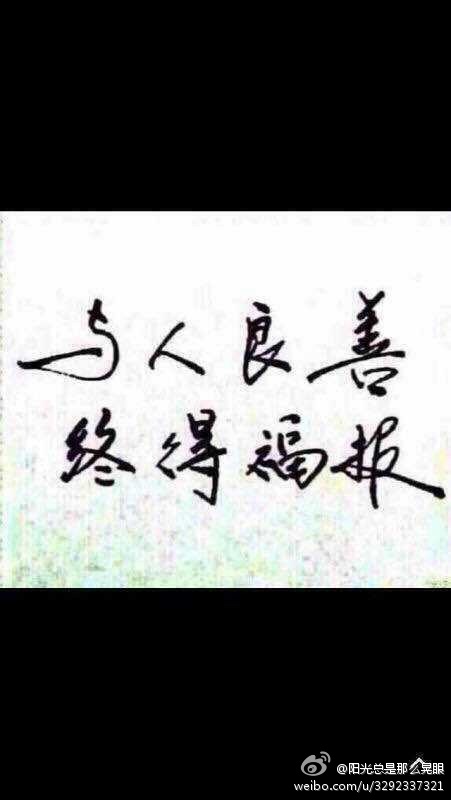 与人良善
终得福报
@阳光总是那么晃眼
weibo.com/u/3292337321